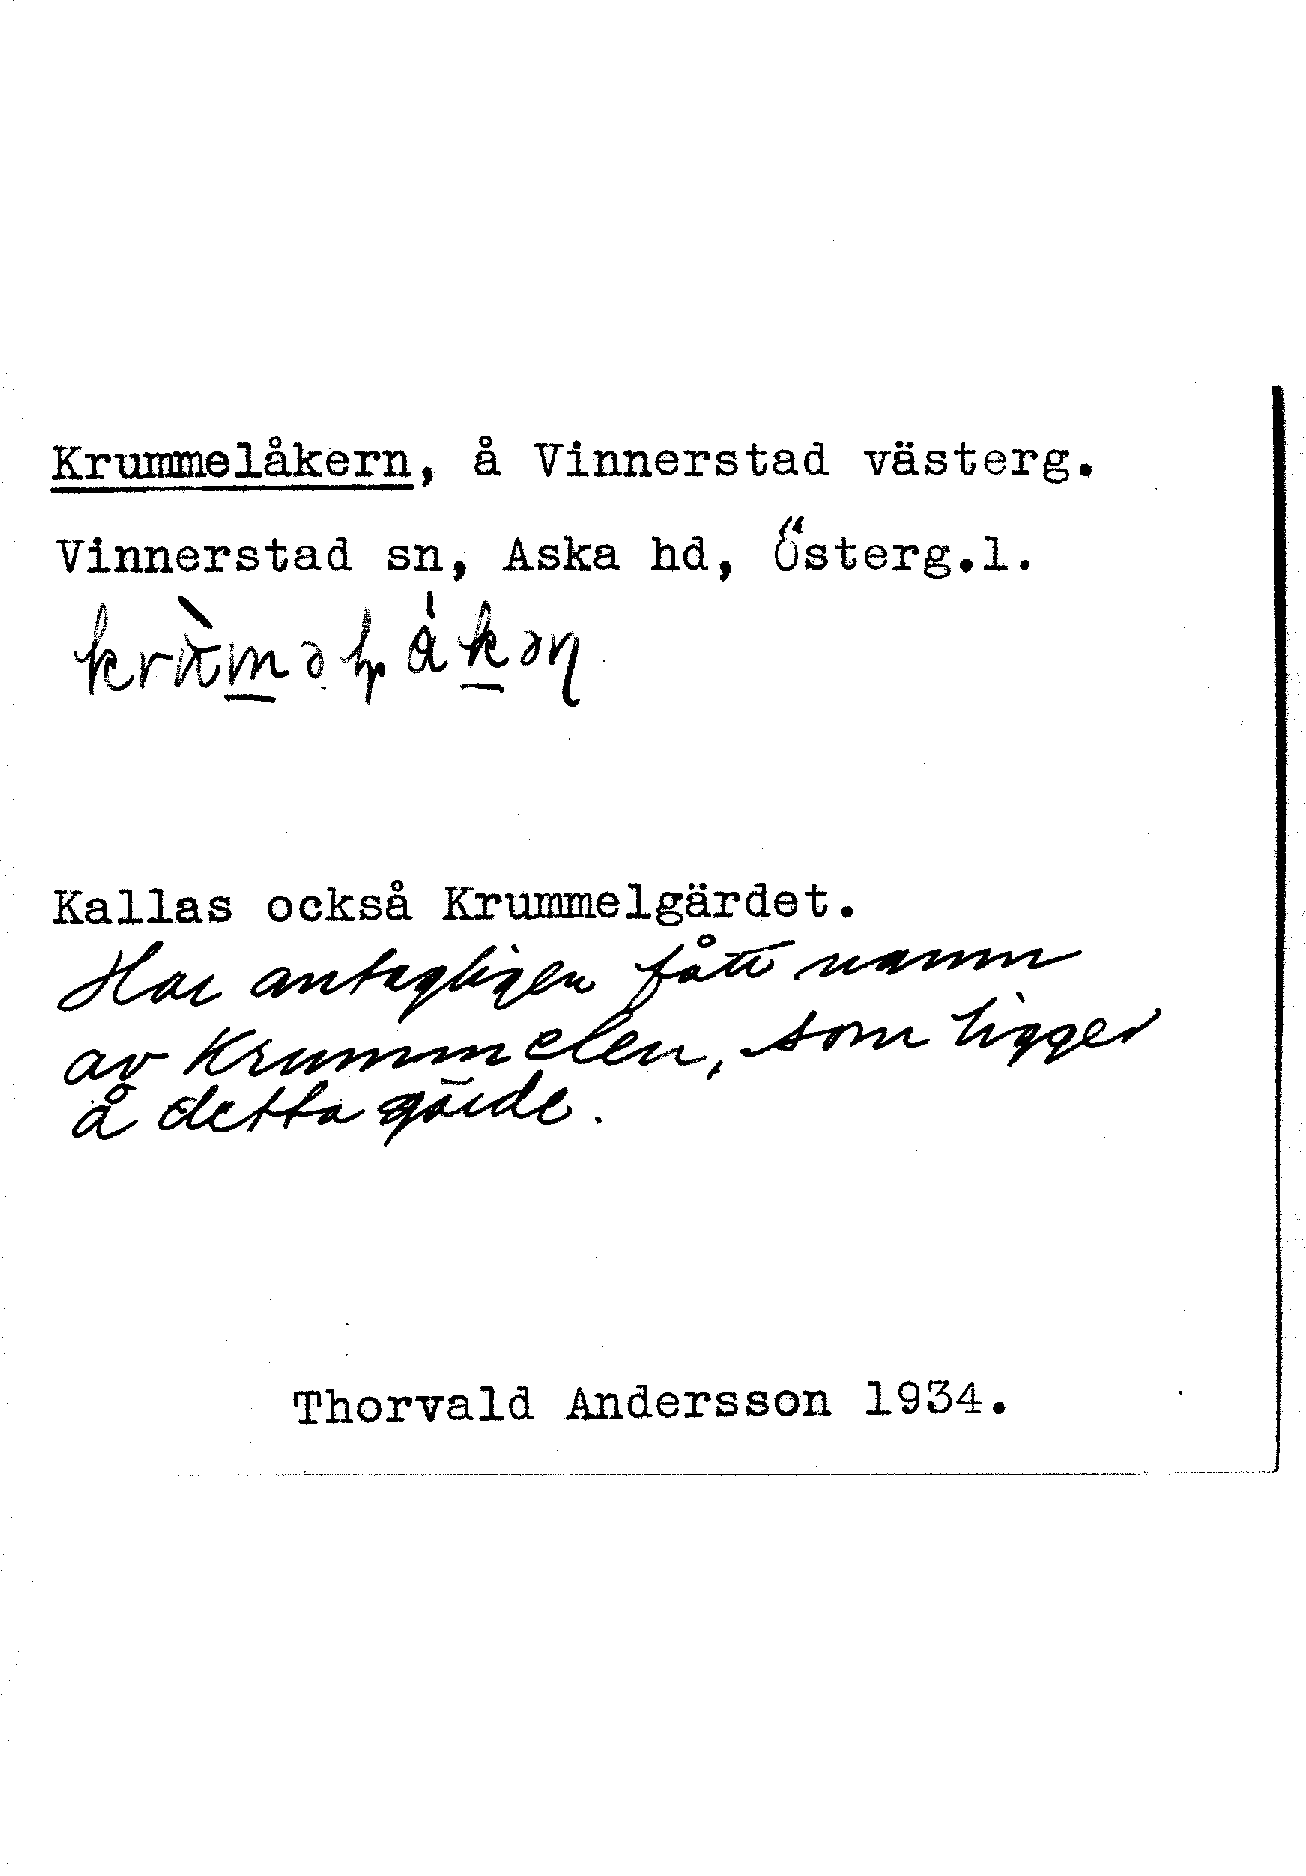 Krummelåkern, å Vinnerstad västerg.
Vinnerstad sn, Aska hd, Österg.l.
Kallas också Krummelgärdet.
Har antagligen fått namn
av Krummelen, som ligger
å detta gärde.
Thorvald Andersson 1934.